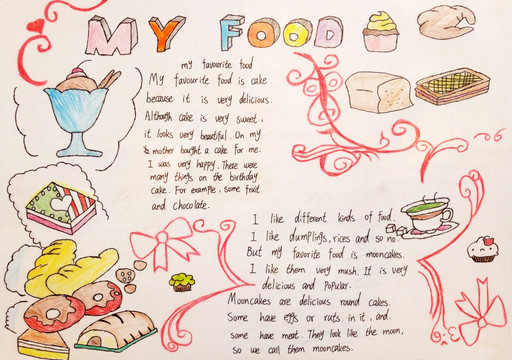 MY FOOD
my favourite food
My favourite food is cake.
because it is very delicious.
Although cake is very sweet,
it looks very beautiful. On my
mother bought a cake for me.
I was very happy. There were
many things on the birthday
cake. For example, some fruit
and chocolate.
I like different kinds of food.
I like dumplings, rices and so no.
But my favorite food is mooncakes.
I like them very mush. It is very
delicious and popular.
Mooncakes are delicious round cakes.
Some have effs or nuts in it, and
some have meat. They look like the moon,
so we call them mooncakes.